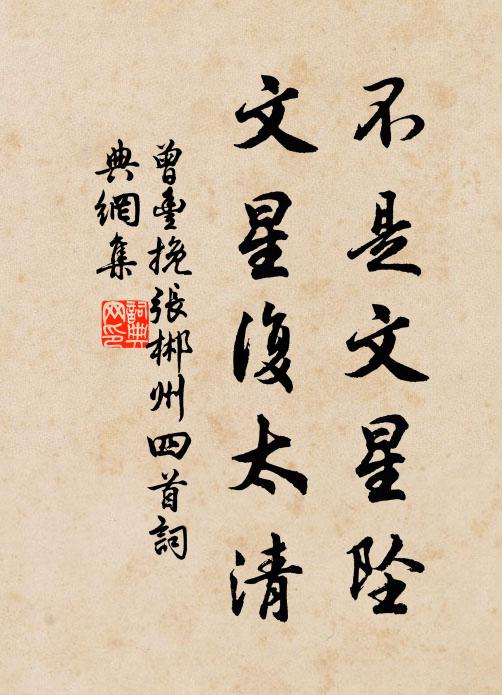 不是文星坠
文星復太清
曾豐挽張郴州四首詞
典網集
詞典网印